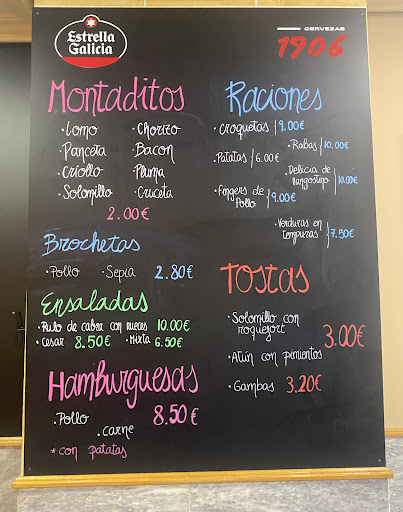 Estrella
Galicia
CERVEZAS
1906
Montaditos
• Lomo • Chorizo
• Panceta • Bacon
• Criollo • Pluma
• Solomillo • Cruceta
2.00€
Raciones
• Croquetas / 9.00€
• Rabas / 10.00€
• Patatas / 6.00€
• Delicia de
langostino / 10.00€
• Fingers de
Pollo / 9.00€
• Verduras en
Tempuras } 7.50€
Brochetas
• Pollo • Sepia 2.80€
Ensaladas
• Rulo de cabra con nueces 10.00€
• Cesar 8.50€ • Mixta 6.50€
Hamburguesas
• Pollo 8.50€
• carne
* con patatas
Tostas
• Solomillo con
roquefort 3.00€
• Atún con pimientos
• Gambas 3.20€